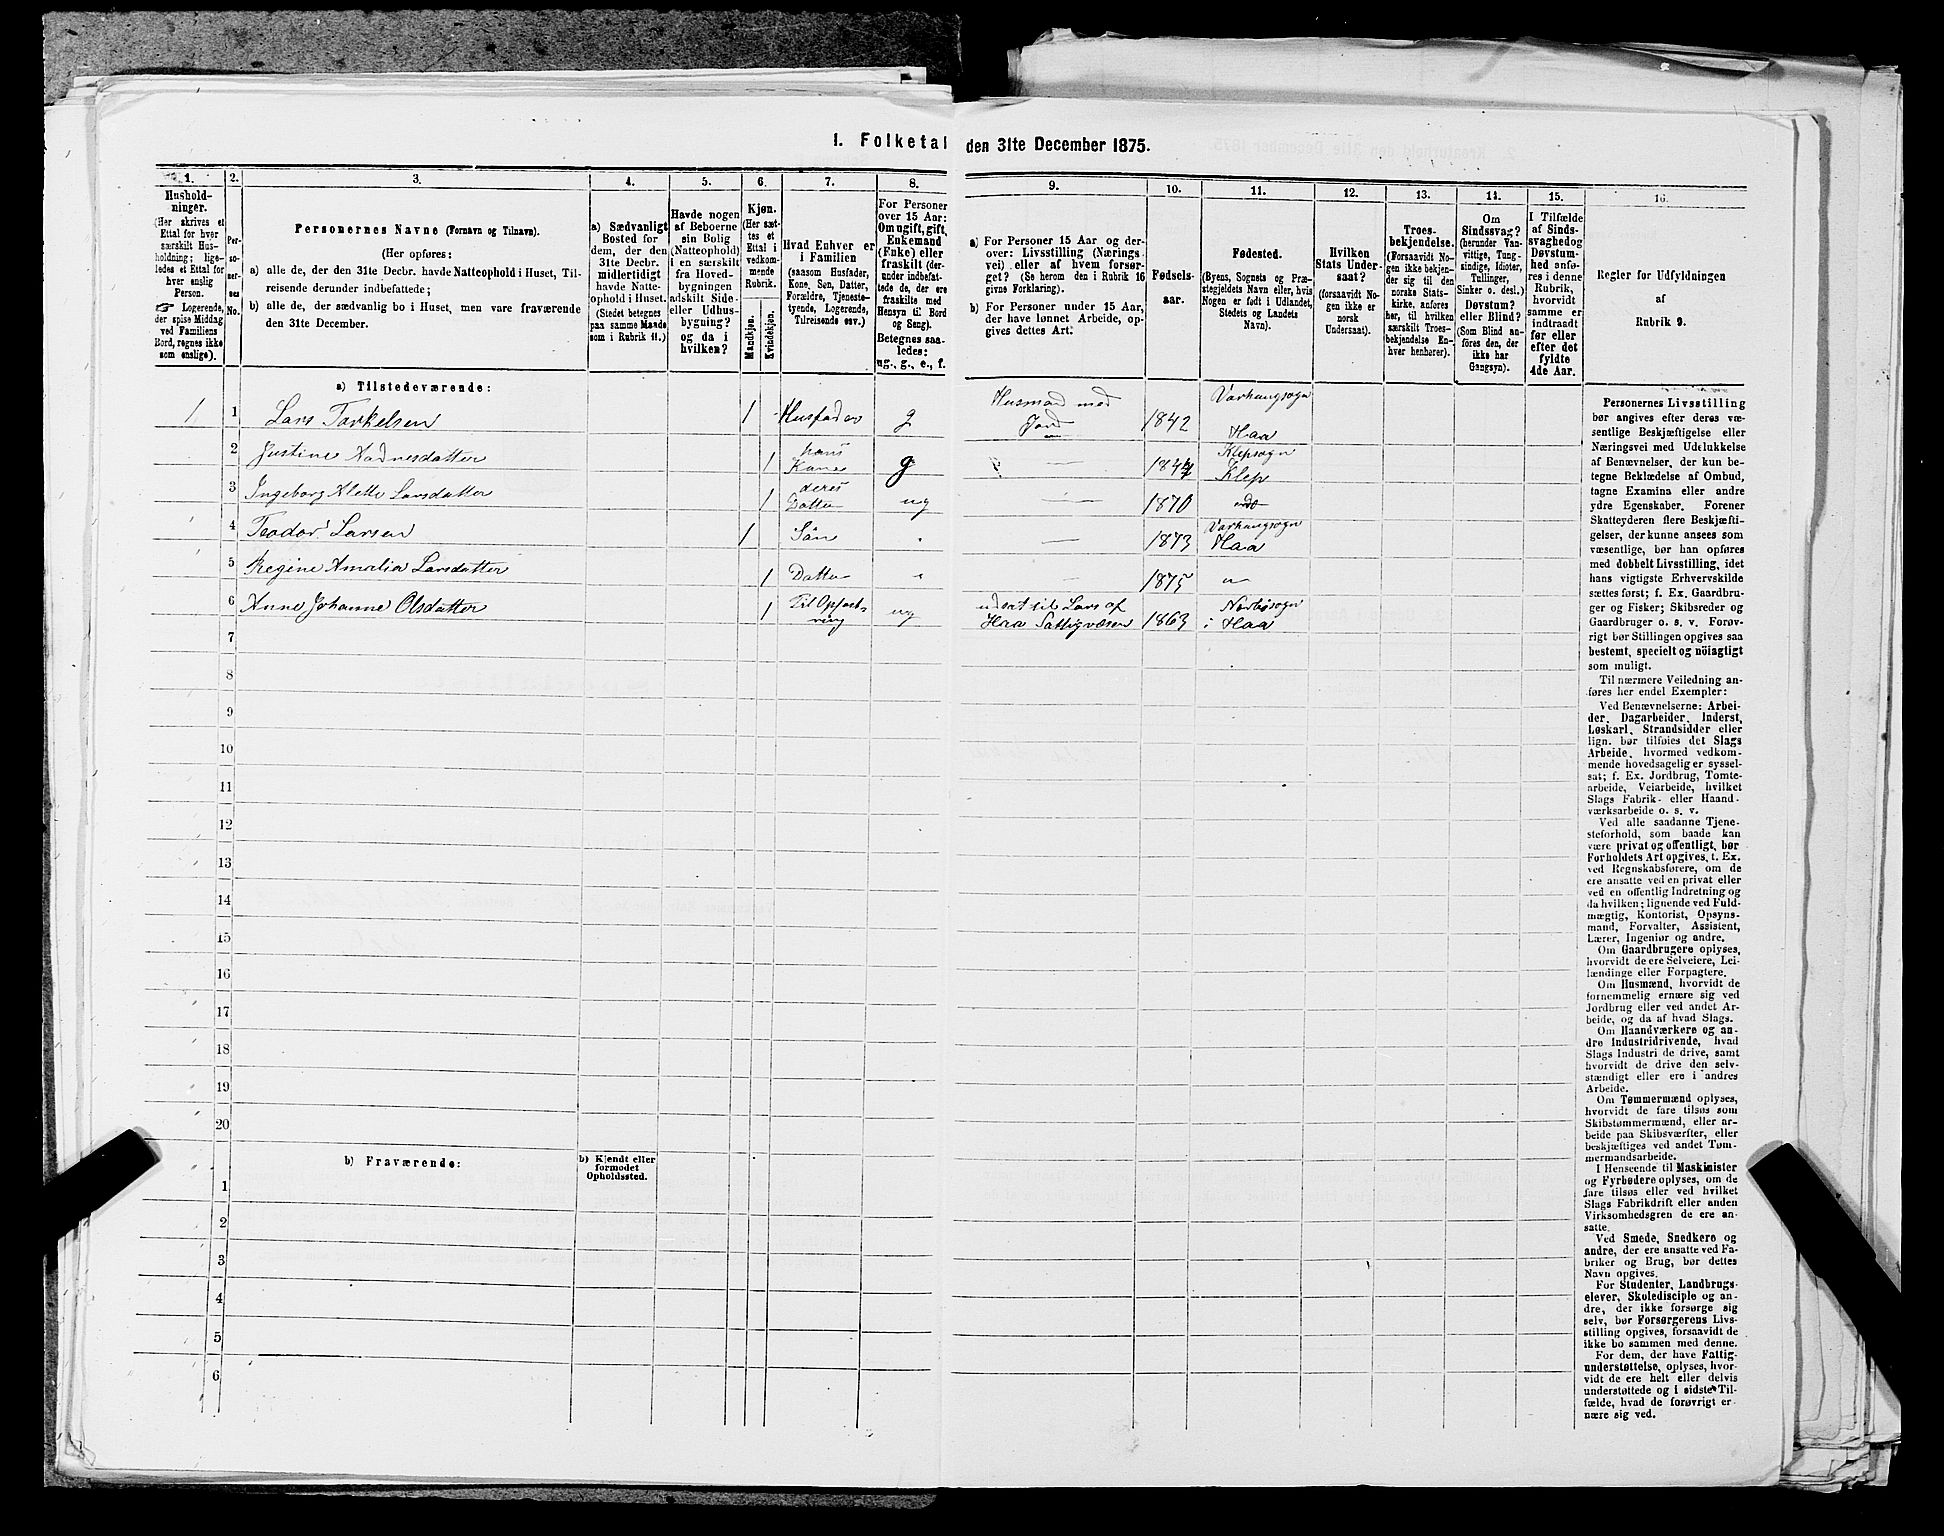 1. Folketal den 31te December 1875.
1.
2.
3.
4.
5.
6.
7.
8.
9.
10.
11.
12.
13.
14.
15.
16.
Hushold-
ninger.
(Her skrives et
Ettal for hver
særskilt Hus-
holdning; lige-
ledes et Ettal for
hver enslig
Person.
☞ Logerende,
der spise Middag
ved Familiens
Bord, regnes ikke
som enslige).
Per-
so-
ner-
nes
No.
Personernes Navne (Fornavn og Tilnavn).
(Her opføres:
a) alle de, der den 31te Decbr. havde Natteophold i Huset, Til-
reisende derunder indbefattede;
b) alle de, der sædvanlig bo i Huset, men vare fraværende
den 31te December.
a) Sædvanligt
Bosted for
dem, der den
31te Decbr.
midlertidigt
havde Natte-
ophold i Huset.
(Stedet betegnes
paa samme Maade
som i Rubrik 11.)
Havde nogen
af Beboerne
sin Bolig
(Natteophold)
i en særskilt
fra Hoved-
bygningen
adskilt Side-
eller Udhus-
bygning?
og da i
hvilken?
Kjøn.
(Her sæt-
tes et
Ettal i
vedkom-
mende
Rubrik.
Mandkjøn.
Kvindekjøn.
Hvad Enhver er
i Familien
(saasom Husfader,
Kone, Søn, Datter,
Forældre, Tjeneste-
tyende, Logerende,
Tilreisende osv.)
For Personer
over 15 Aar:
Om ugift, gift,
Enkemand
(Enke) eller
fraskilt (der-
under indbefat-
tede de, der ere
fraskilte med
Hensyn til Bord
og Seng).
Betegnes saa-
ledes:
ug., g., e., f.
a) For Personer 15 Aar og der-
over: Livsstilling (Nærings-
vei) eller af hvem forsør-
get? (Se herom den i Rubrik 16
givne Forklaring).
b) For Personer under 15 Aar,
der have lønnet Arbeide, op-
gives dettes Art.
Fødsels-
aar.
Fødested.
(Byens, Sognets og Præ-
stegjeldets Navn eller, hvis
Nogen er født i Udlandet,
Stedets og Landets
Navn).
Hvilken
Stats Under-
saat?
(forsaavidt No-
gen ikke er
norsk
Undersaat).
Troes-
bekjendelse.
(Forsaavidt No-
gen ikke bekjen-
der sig til den
norske Stats-
kirke, anføres
her, til hvilken
særskilt Troes-
bekjendelse En-
hver henhører).
Om
Sindssvag?
(herunder Van-
vittige, Tung-
sindige, Idioter,
Tullinger,
Sinker o. desl.)
Døvstum?
eller Blind?
(Som Blind an-
føres den, der
ikke har
Gangsyn).
I Tilfælde
af Sinds-
svaghed og
Døvstum-
hed anfø-
res i denne
Rubrik,
hvorvidt
samme er
indtraadt
før eller
efter det
fyldte
4de Aar.
Regler for Udfyldningen
af
Rubrik 9.
a) Tilstedeværende:
1 1 Lars Torkelsen 1 Husfader g Husmand med Jord 1842 Varhaugsogn Haa
2 Justine Aadnesdatter 1 hans Kone g — 1844 Klepsogn Klep
3 Ingeborg Alette Larsdatter 1 deres Datter ug — 1870 do
4 Teodor Larsen 1 Søn " — 1873 Varhaugsogn Haa
5 Regine Amalia Larsdatter 1 Datter " — 1875 "
6 Anne Johanne Olsdatter 1 Til Opfostring ug udsat til Lars af Haa Fattigvæsen 1863 Nærbøsogn i Haa
7
8
9
10
11
12
13
14
15
16
17
18
19
20
b) Fraværende:
b) Kjendt eller
formodet
Opholdssted.
1
2
3
4
5
6
Personernes Livsstilling
bør angives efter deres væ-
sentlige Beskjæftigelse eller
Næringsvei med Udelukkelse
af Benævnelser, der kun be-
tegne Beklædelse af Ombud,
tagne Examina eller andre
ydre Egenskaber. Forener
Skatteyderen flere Beskjæfti-
gelser, der kunne ansees som
væsentlige, bør han opføres
med dobbelt Livsstilling, idet
hans vigtigste Erhvervskilde
sættes først; f. Ex. Gaardbru-
ger og Fisker; Skibsreder og
Gaardbruger o. s. v. Forøv-
rigt bør Stillingen opgives saa
bestemt, specielt og nöiagtigt
som muligt.
Til nærmere Veiledning an-
føres her endel Exempler:
Ved Benævnelserne: Arbei-
der, Dagarbeider, Inderst,
Løskarl, Strandsidder eller
lign. bør tilføies det Slags
Arbeide, hvormed vedkom-
mende hovedsagelig er syssel-
sat; f. Ex. Jordbrug, Tomte-
arbeide, Veiarbeide, hvilket
Slags Fabrik- eller Haand-
værksarbeide o. s. v.
Ved alle saadanne Tjene-
steforhold, som baade kan
være privat og offentligt, bør
Forholdets Art opgives, t. Ex.
ved Regnskabsførere, om de
ere ansatte ved en privat eller
ved en offentlig Indretning og
da hvilken; lignende ved Fuld-
mægtig, Kontorist, Opsyns-
mand, Forvalter, Assistent,
Lærer, Ingeniør og andre.
Om Gaardbrugere oplyses,
hvorvidt de ere Selveiere, Lei-
lændinge eller Forpagtere.
Om Husmænd, hvorvidt de
fornemmelig ernære sig ved
Jordbrug eller ved andet Ar-
beide, og da af hvad Slags.
Om Haandværkere og an-
dre Industridrivende, hvad
Slags Industri de drive, samt
hvorvidt de drive den selv-
stændigt eller ere i andres
Arbeide.
Om Tømmermænd oplyses,
hvorvidt de fare tilsøs som
Skibstømmermænd, eller ar-
beide paa Skibsværfter, eller
beskjæftiges ved andet Tøm-
mermandsarbeide.
I Henseende til Maskinister
og Fyrbødere oplyses, om de
fare tilsøs eller ved hvilket
Slags Fabrikdrift eller anden
Virksomhedsgren de ere an-
satte.
Ved Smede, Snedkere og
andre, der ere ansatte ved Fa-
briker og Brug, bør dettes
Navn opgives.
For Studenter, Landbrugs-
elever, Skoledisciple og an-
dre, der ikke forsørge sig
selv, bør Forsørgerens Livs-
stilling opgives, forsaavidt de
ikke bo sammen med denne.
For dem, der have Fattig-
understøttelse, oplyses, hvor-
vidt de ere helt eller delvis
understøttede og i sidste Til-
fælde, hvad de forøvrigt er-
nære sig ved.